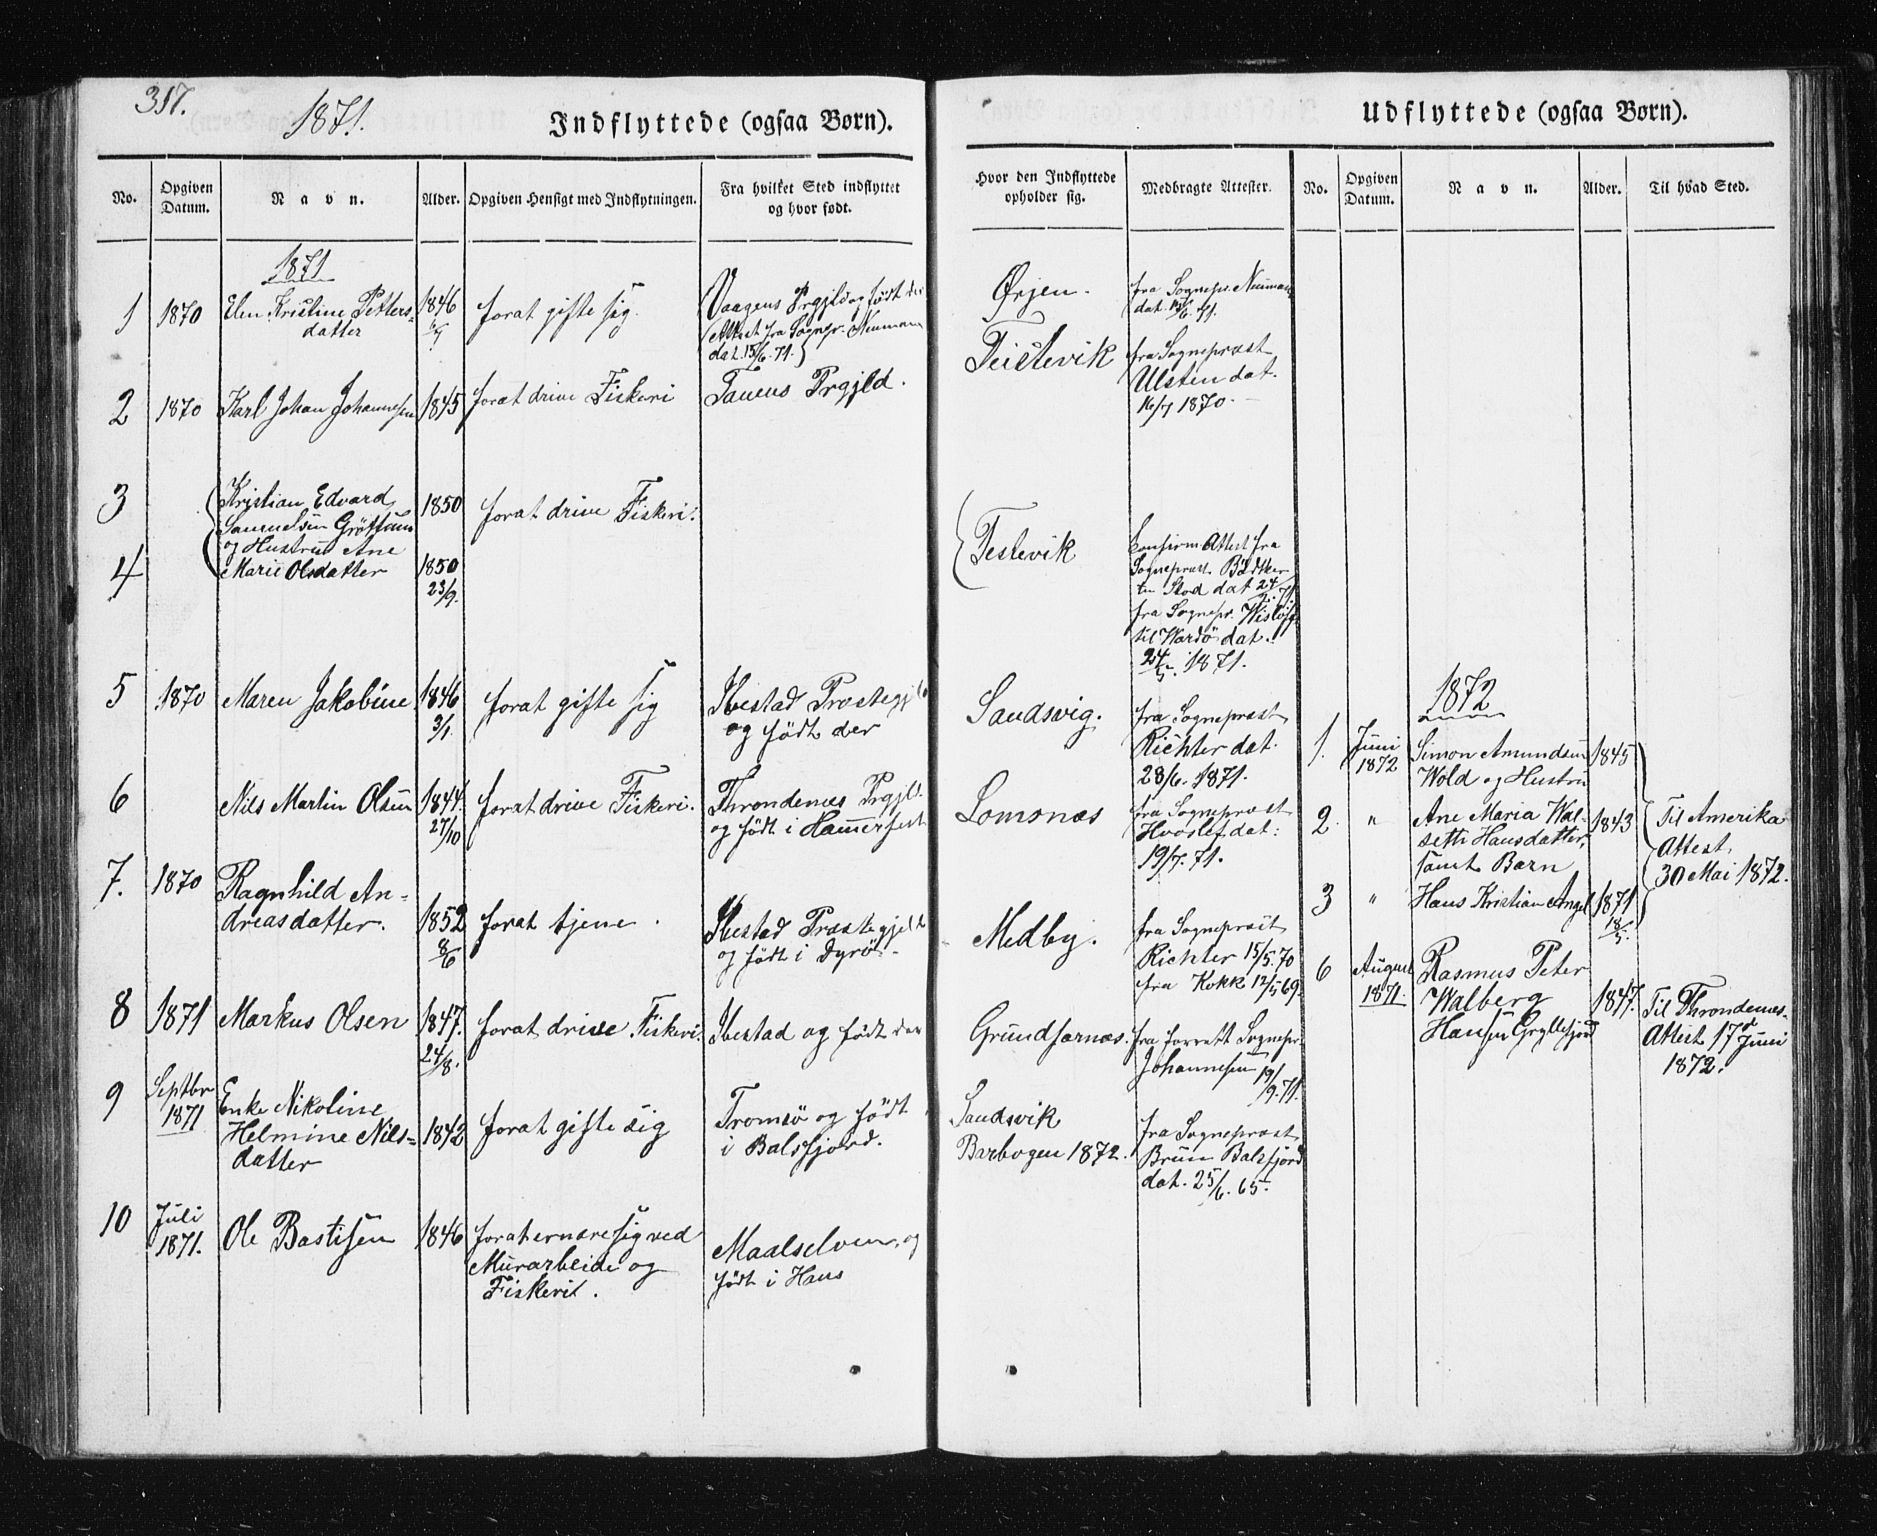 317.
1871.
Indflyttede (ogsaa Børn).
No.
Opgiven Datum.
Navn.
Alder.
Opgiven Hensigt med Indflytningen.
Fra hvilket Sted indflyttet
og hvor født.
1871
1
1870
Elen Kristine Petters-
datter
1846
forat gifte sig.
Vaagens Prgjld og født der
(Attest fra Sognepr. Neumann
dat. 15/6. 71.)
2
1870
Karl Johan Johannesen
1845
forat drive Fiskeri
Tanens Prgjld.
3
Kristian Edvard
Samuelsen Grøttum
1850
forat drive Fiskeri.
4
og Hustru Ane
Marie Olsdatter
1850
23/9.
5
1870
Maren Jakobine
1846
3/1.
forat gifte sig
Ibestad Præstegjld
og født der
6
Nils Martin Olsen
1844.
27/10
forat drive Fiskeri.
Throndenæs Prgjld.
og født i Hammerfest
7.
1870
Ragnhild An-
dreasdatter.
1852
8/6
forat tjene.
Ibestad Præstegjeld
og født i Dyrø.
8
1871
Markus Olsen
1847.
24/8.
forat drive Fiskeri.
Ibestad og født der
9
Septbr
1871
Enke Nikoline
Helmine Nils-
datter
1842
forat gifte sig
Tromsø og født
i Balsfjord.
10
Juli
1871.
Ole Bastisen
1846
forat ernære sig ved
Murarbeide og
Fiskeri.
Maalselven, og
født i Haus
Udflyttede (ogsaa Børn).
Hvor den Indflyttede
opholder sig.
Medbragte Attester.
No.
Opgiven Datum.
Navn.
Alder.
Til hvad Sted.
Ørjen.
fra Sognepr. Neumann
dat. 15/6. 71.
Teistevik
fra Sognepræst
Ulsten dat.
16/7 1870.
Testevik
Konfirm Attest fra
Sognepræst Bødtker
til Stod dat 24/
fra Sognepr. Wisløff
til Wardö dat.
24/5. 1871.
Sandsvig.
fra Sognepræst
Richter dat.
28/6. 1871.
Lomsnæs
fra Sognepræst
Hvoslef dat:
19/7. 71.
Medby.
fra Sognepræst
Richter 15/5.70
fra Kokk 12/5 69.
Grundfarnæs.
fra forrett Sognepr.
Johannesen 19/9.71.
Sandsvik
Barbogen 1872.
fra Sognepræst
Bruun Balsfjord
dat. 25/6. 65.
1872
1.
Juni
1872
Simon Amundsen
Wold og Hustru
1845
2.
"
Ane Maria Wal-
seth Hansdatter,
samt Barn
1843
Til Amerika
Attest
30 Mai 1872.
3
"
Hans Kristian Angel
1871
18/5.
6
August
1871.
Rasmus Peter
Walberg
Hansen Gryllefjord
1847.
Til Throndenæs.
Attest 17de Juni
1872.